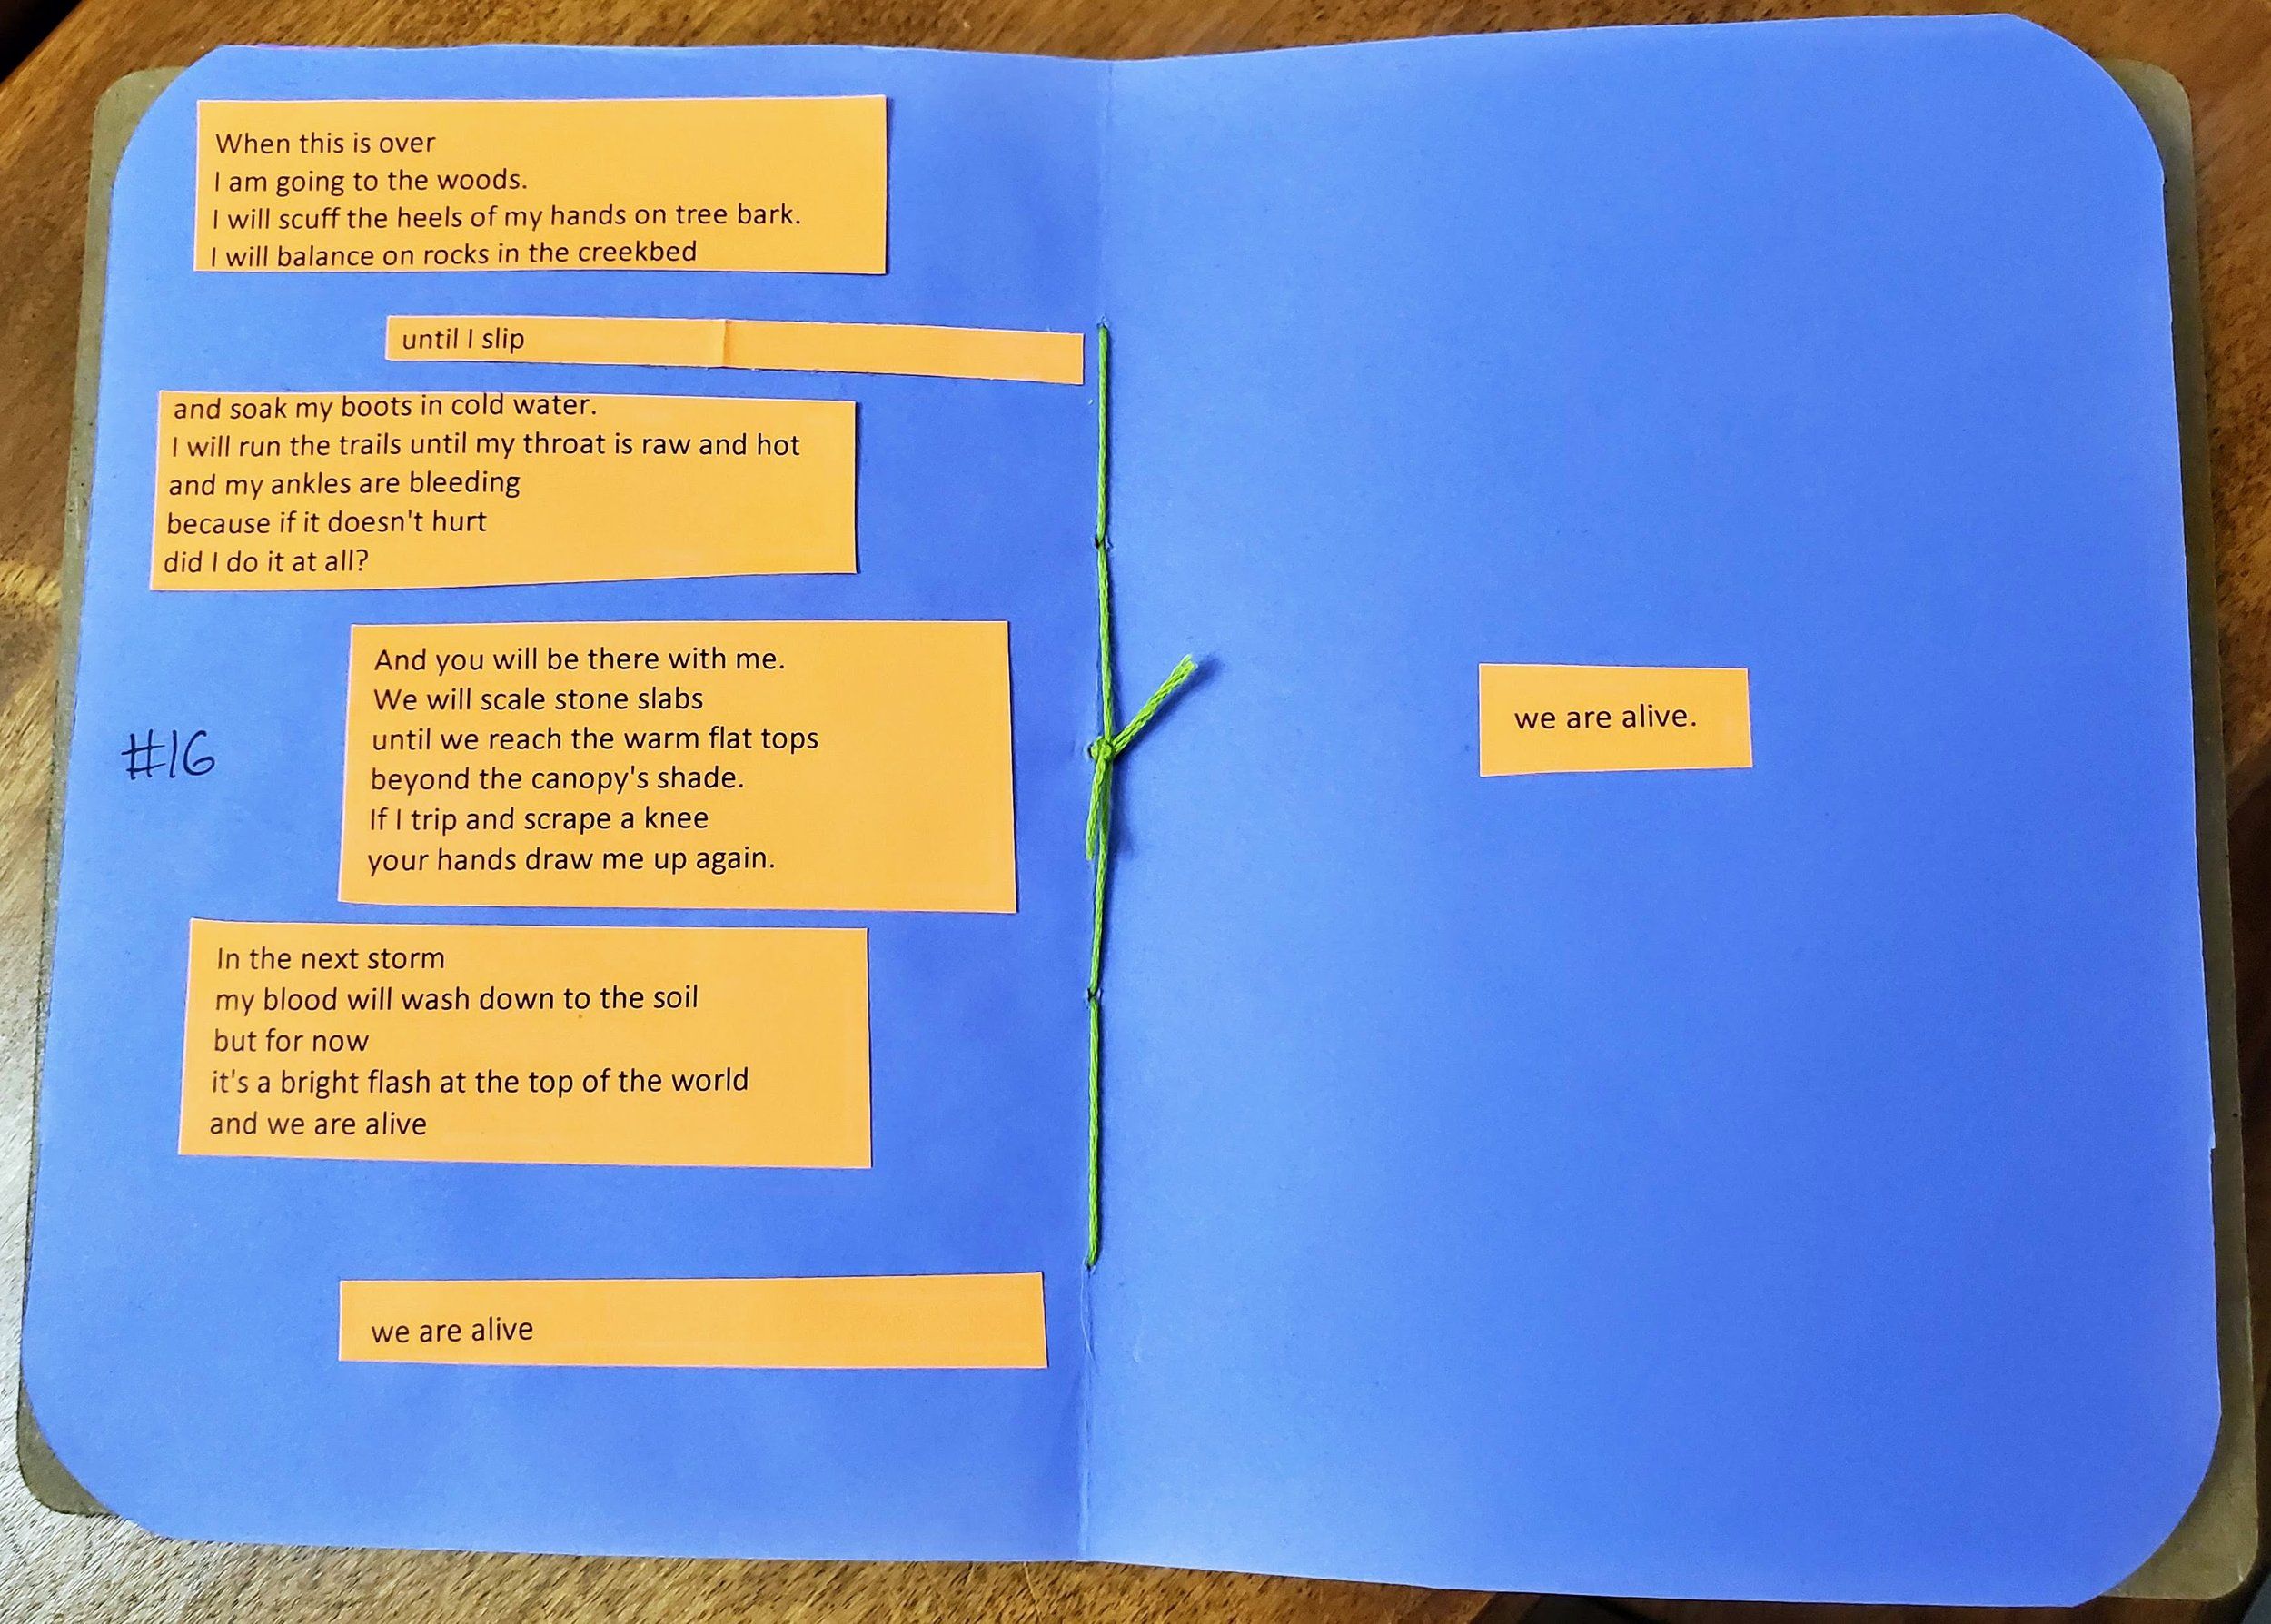 When this is over
I am going to the woods.
I will scuff the heels of my hands on tree bark.
I will balance on rocks in the creekbed
until I slip
and soak my boots in cold water.
I will run the trails until my throat is raw and hot
and my ankles are bleeding
because if it doesn't hurt
did I do it at all?
And you will be there with me.
We will scale stone slabs
until we reach the warm flat tops
beyond the canopy's shade.
If I trip and scrape a knee
your hands draw me up again.
#16
In the next storm
my blood will wash down to the soil
but for now
it's a bright flash at the top of the world
and we are alive
we are alive
we are alive.